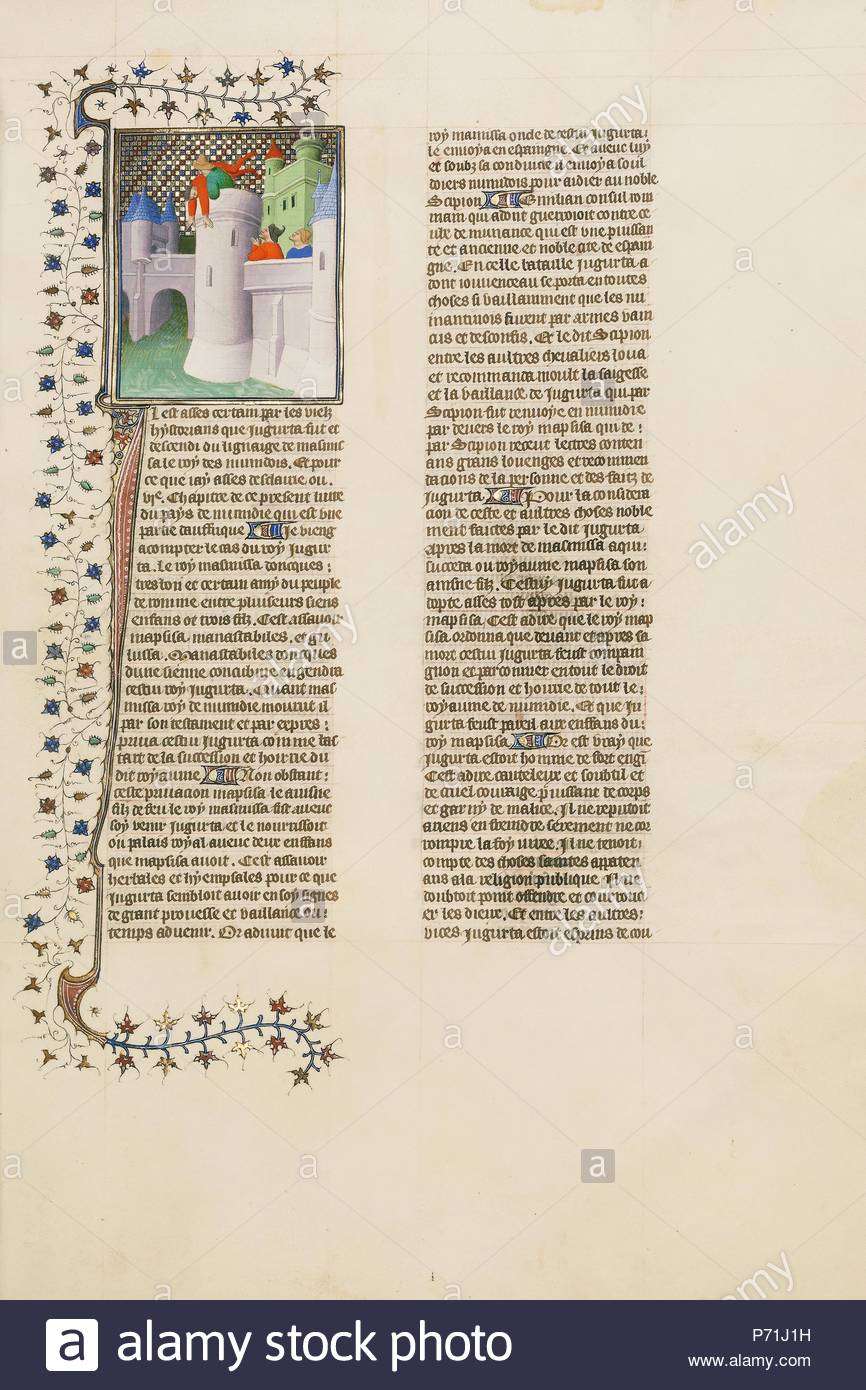 Il est asses certain par les vielz
hystorians que Jugurta fut et
descendi du lignaige de masinis
sa le roy des numidois. Et pour
ce que iay asses desclaire ou.
vᵉ. Chapitre de ce present livre
du pays de numidie qui est une
partie dauffrique Je vieng
a compter le cas du roy Jugur
ta. Le roy masinissa doncques:
tres bon et certain amy du peuple
de romme entre plusieurs siens
enfans ot trois filz. Cest assavoir
mapsisa manastabiles. et gu
lussa. Manastabiles doncques
dune sienne concubine engendra
cestui roy Jugurta. Quant mas
missa roy de numidie mourut il
par son testament et par expres:
priva cestui Jugurta comme bas
tart de la succession et hoirie du
dit royaume Non obstant:
ceste privacion mapsisa le ainsne
filz de feu le roy masinissa fist avec
soy venir Jugurta et le nourrissoit
ou palais royal avec deux enfans
que mapsisa avoit. Cest assavoir
herbales et hyempsales pour ce que
Jugurta sembloit avoir en soy signes
de grant prouesse et vaillance ou:
temps advenir. Or advint que le
roy manissa onde cestui Jugurta:
le envoya en espaingne. Et avec luy
et soubz sa conduicte il envoya soul
doiers numidois pour aidier au noble
Scipion Emilian consul rom
main qui adont guerroioit contre ce
ite de numance qui est une puissan
te et ancienne et noble cite de espai
gne. En celle bataille Jugurta a
dont iouvenceau se porta en toutes
choses si vaillamment que les nu
mantinois furent par armes vain
cus et desconfis. Et le dit Scipion
entre les aultres chevaliers loua
et recommanda moult la saigesse
et la vaillance de Jugurta qui par
Scipion fut renvoye en numidie
par devers le roy mapsisa qui de:
par Scipion receut lectres conten
ans grans louenges et recommen
dacions de la personne et des faitz de
Jugurta Pour la considera
cion de ceste et aultres choses noble
ment faictes par le dit Jugurta
Apres la mort de masinissa a qui:
succeda ou royaume mapsisa son
ainsne filz. Cestuy Jugurta fut a
dopte asses tost apres par le roy:
mapsisa. Cest adire que le roy map
sisa ordonna que devant et apres sa
mort cestui Jugurta feust compain
gnon et parconnier en tout le droit
de succession et hoirie de tout le:
royaume de numidie. Et que Ju
gurta feust pareil aux enffans du:
roy mapsisa Or est vray que
Jugurta estoit homme de fort engi
Cest adire cauteleux et soubtil et
de cruel couraige puissant de corps
et garny de malice. Il ne reputoit
aviens en freindre serement ne cor
rompre la foy juree. Il ne tenoit:
compte des choses saintes apaten
ans a la religion publique. Il ne
doubtoit point offendre et courouc
er les dieux. Et entre les aultres:
vices Jugurta estoit esprins de cou
a alamy stock photo
P71J1H
www.alamy.com